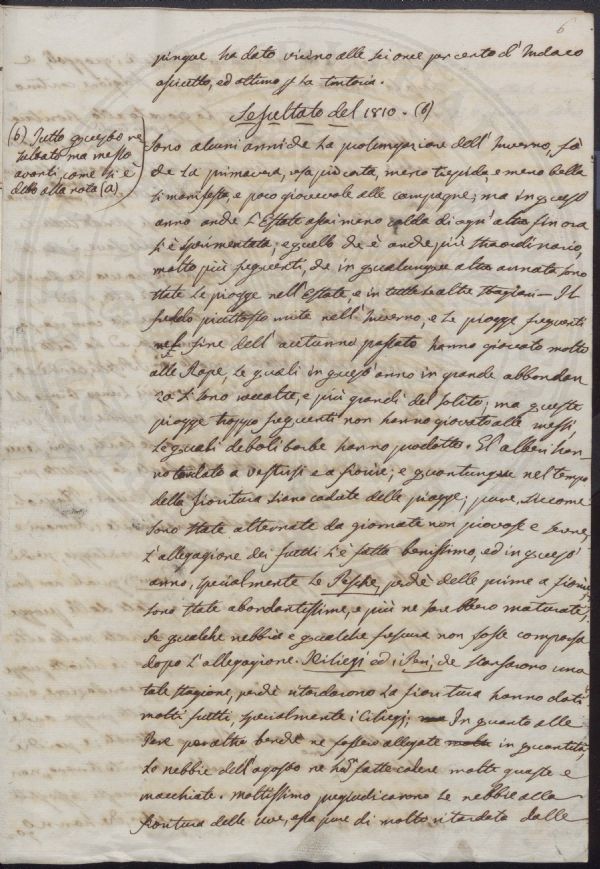 6
pingue ha dato vicino alle sei once per cento d'Indaco
asciutto, ed ottimo p. la tintoria.
Resultato del 1810. (b)
(b) Tutto questo re
sultato ma messo
avanti, come si è
detto alla nota (a)
Sono alcuni anni che la prolungazione dell'Inverno, fà
che la primavera, sia più corta, meno tiepida, e meno bella
si manifesta, e poco giovevole alle campagne; ma in quest'
anno anche l'Estate assai meno calda di ogn'altra fin ora
si è sperimentata; e quello che è anche più straordinario,
molto più frequenti, che in qualunque altra annata sono
state le piogge nell'Estate, e in tutte le altre stagioni - Il
freddo piuttosto mite nell'Inverno, e le piogge frequenti
nel fine dell'autunno passato hanno giovato molto
alle Rape, le quali in quest'anno in grande abbondan
za si sono raccolte, e più grandi del solito; ma queste
piogge troppo frequenti non hanno giovato alle messi
le quali deboli barbe hanno prodotte. Gl'alberi han-
no tardato a vestirsi e a fiorire; e quantunque nel tempo
della fioritura siano cadute delle piogge; pure, siccome
sono state alternate da giornate non piovose e serene,
l'allegagione dei frutti s'è fatta benissimo, ed in quest'
anno, specialmente le Pesche, perchè delle prime a fiorire,
sono state abondantissime, e più ne sarebbero maturate,
se qualche nebbia e qualche frescura non fosse comparsa
dopo l'allegagione. I Ciliegi ed i Peri, che scansarono una
tale stagione, perchè ritardarono la fioritura hanno dati
molti frutti, specialmente i Ciliegi; In quanto alle
Pere peraltro benchè ne fossero allegate in quantità,
le nebbie dell'agosto ne han fatte cadere molte guaste e
macchiate. Moltissimo pregiudicarono le nebbie alla
fioritura delle uve, essa pure di molto ritardata dalle